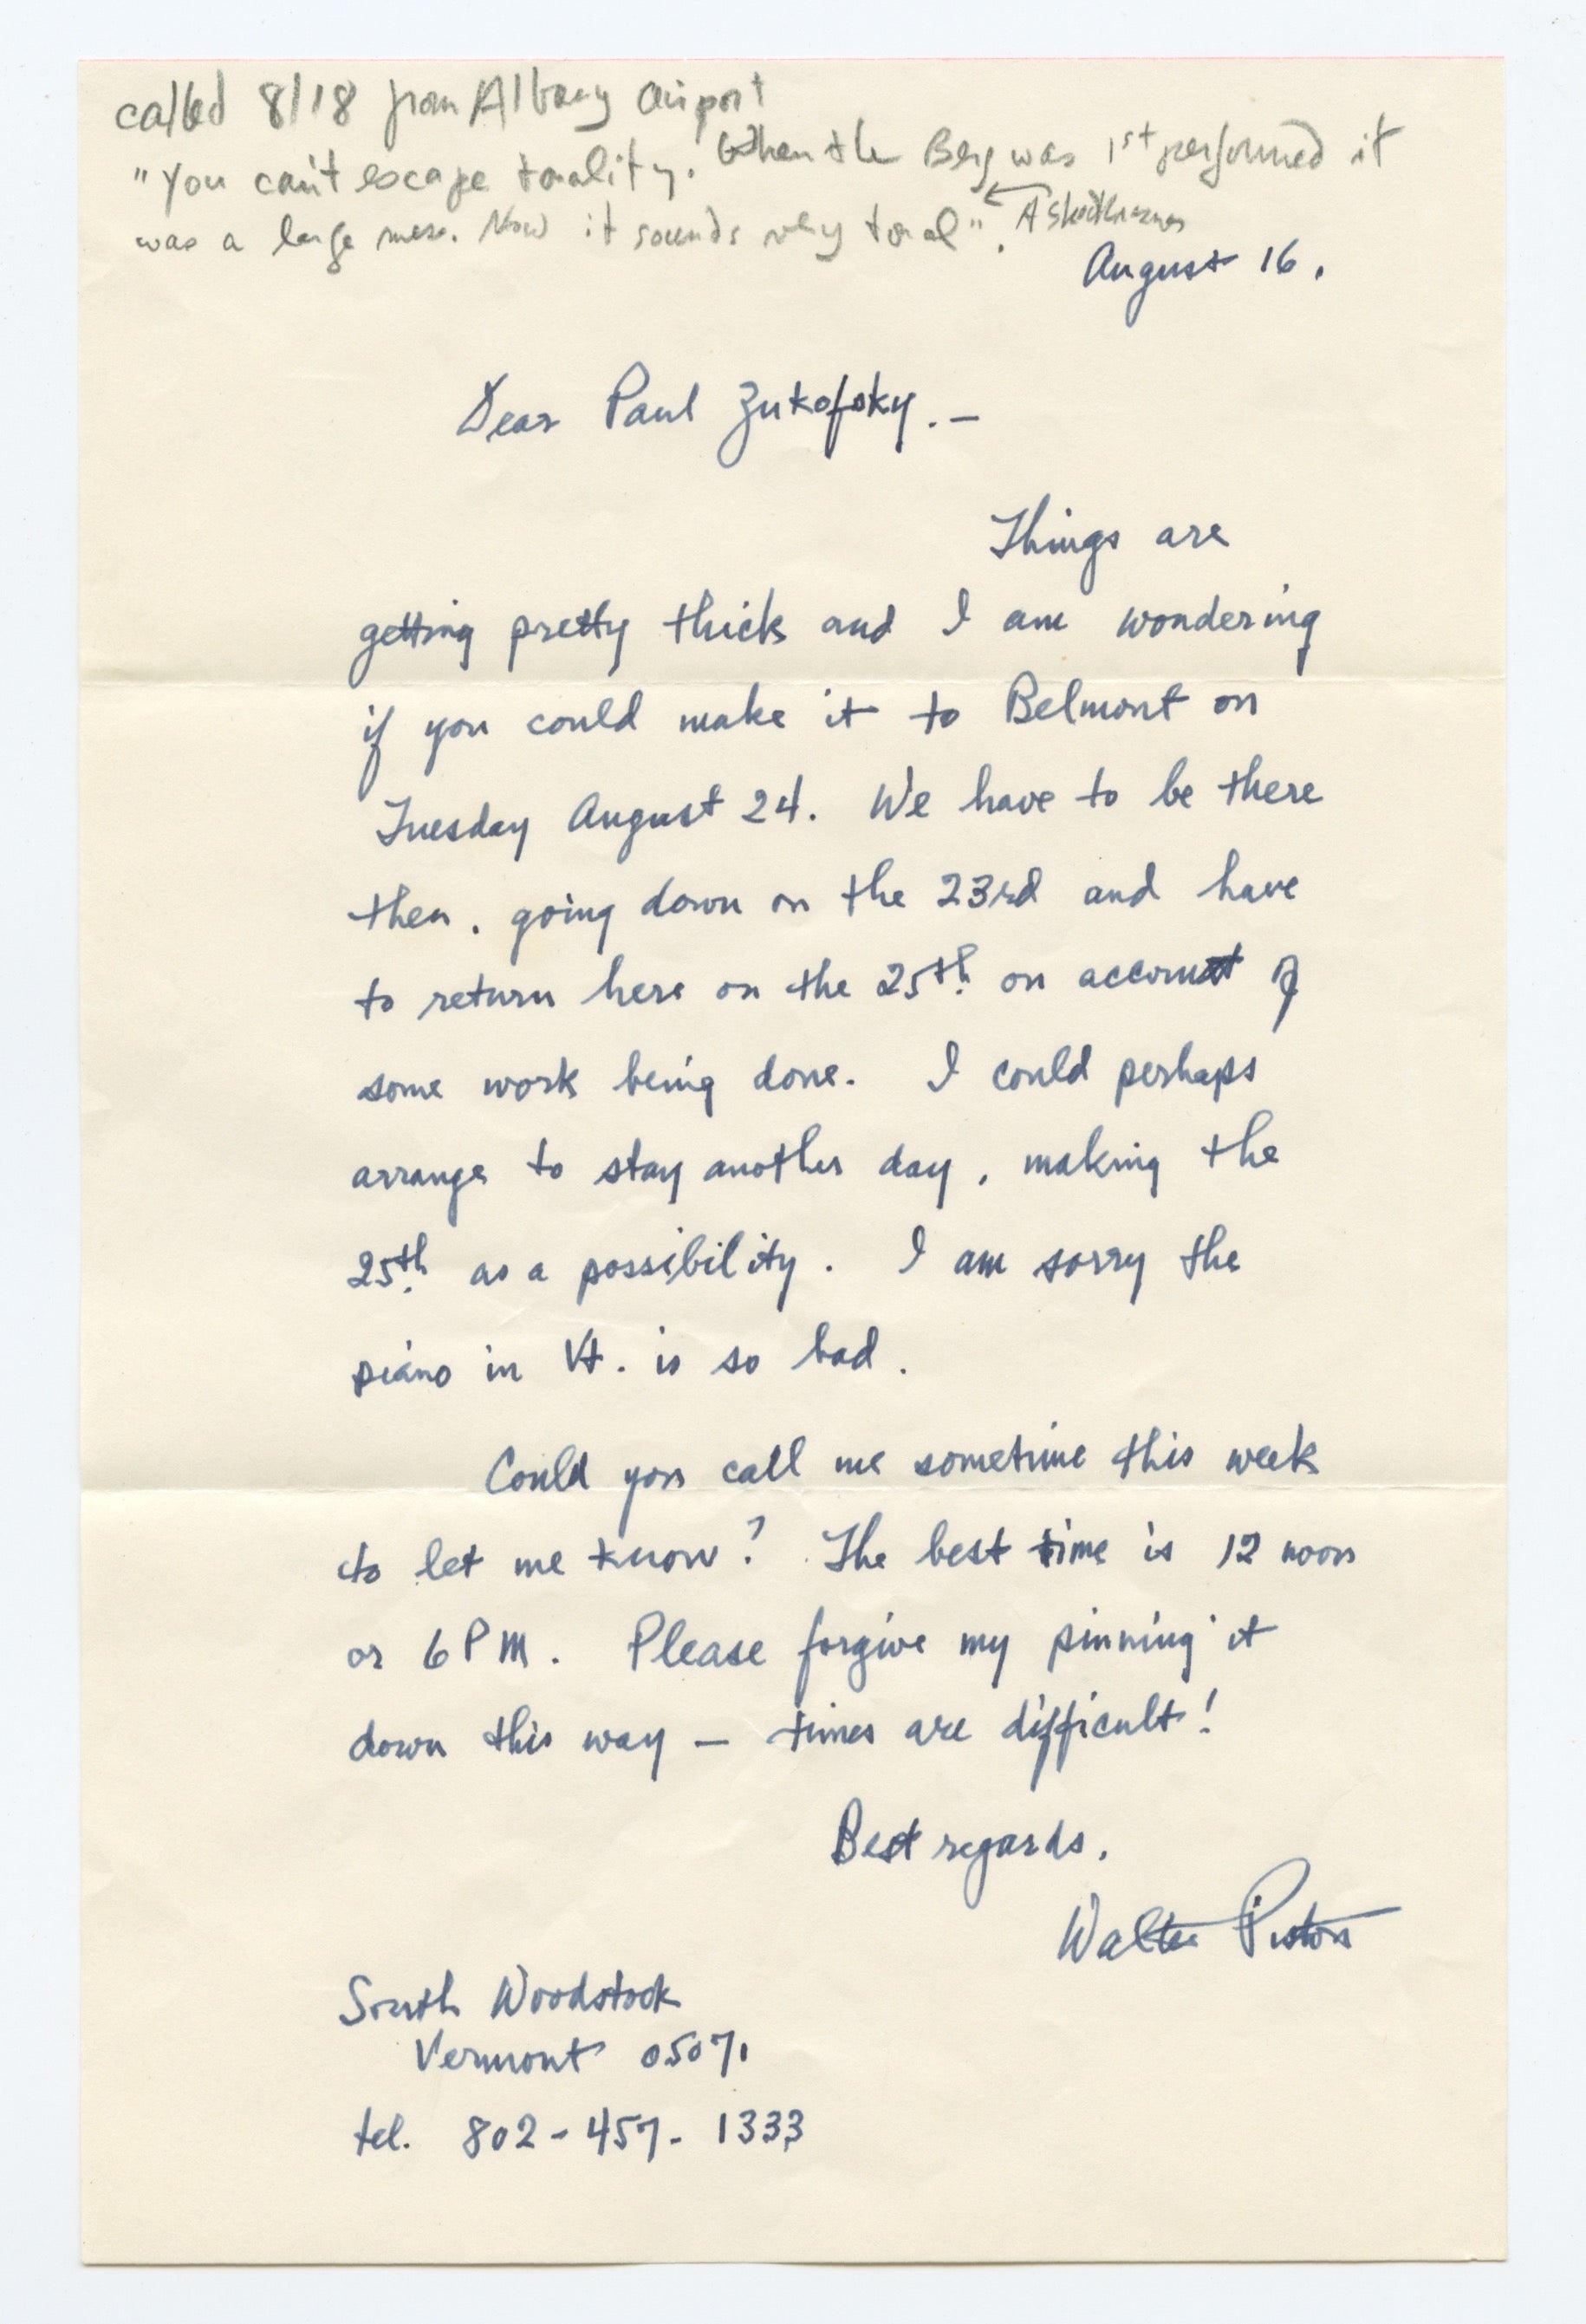 called 8/18 from Albany airport
"You can't escape tonality. When the Berg was 1st performed it
was a large mess. Now it sounds very tonal".
August 16.
Dear Paul Zukofsky. –
Things are
getting pretty thick and I am wondering
if you could make it to Belmont on
Tuesday August 24. We have to be there
then, going down on the 23rd and have
to return here on the 25th on account of
some work being done. I could perhaps
arrange to stay another day, making the
25th as a possibility. I am sorry the
piano in Vt. is so bad.
Could you call me sometime this week
to let me know? The best time is 12 noon
or 6 PM. Please forgive my pinning it
down this way – times are difficult!
Best regards,
Walter Piston
South Woodstock
Vermont 05071
tel. 802-457-1333